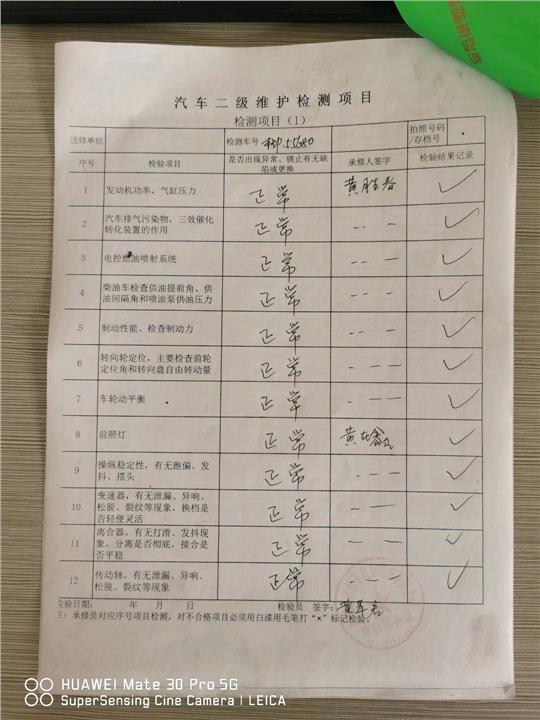 汽车二级维护检测项目
检测项目(1)
送修单位 检测车号 55680 拍照号码/存档号
序号 检验项目 是否出现异常、锁止有无缺陷或更换 承修人签字 检验结果记录
1 发动机功率，气缸压力 正常 黄胜春 ✓
2 汽车排气污染物，三效催化转化装置的作用 正常 - - — ✓
3 电控燃油喷射系统 正常 - — — ✓
4 柴油车检查供油提前角、供油间隔角和喷油泵供油压力 正常 - - — ✓
5 制动性能、检查制动力 正常 - - — ✓
6 转向轮定位，主要检查前轮定位角和转向盘自由转动量 正常 - — — ✓
7 车轮动平衡 正常 - — — ✓
8 前照灯 正常 黄 ✓
9 操纵稳定性，有无跑偏、发抖、摆头 正常 - — — ✓
10 变速器，有无泄漏、异响、松脱、裂纹等现象，换档是否轻便灵活 正常 - - — ✓
11 离合器，有无打滑、发抖现象，分离是否彻底，接合是否平稳 正常 - - — ✓
12 传动轴，有无泄漏、异响、松脱、裂纹等现象 正常 - - — ✓
检验日期： 年 月 日 检验员 签字：黄
注：承修员对应序号项目检测，对不合格项目必须用白漆用毛笔打"×"标记检验。
HUAWEI Mate 30 Pro 5G
SuperSensing Cine Camera | LEICA